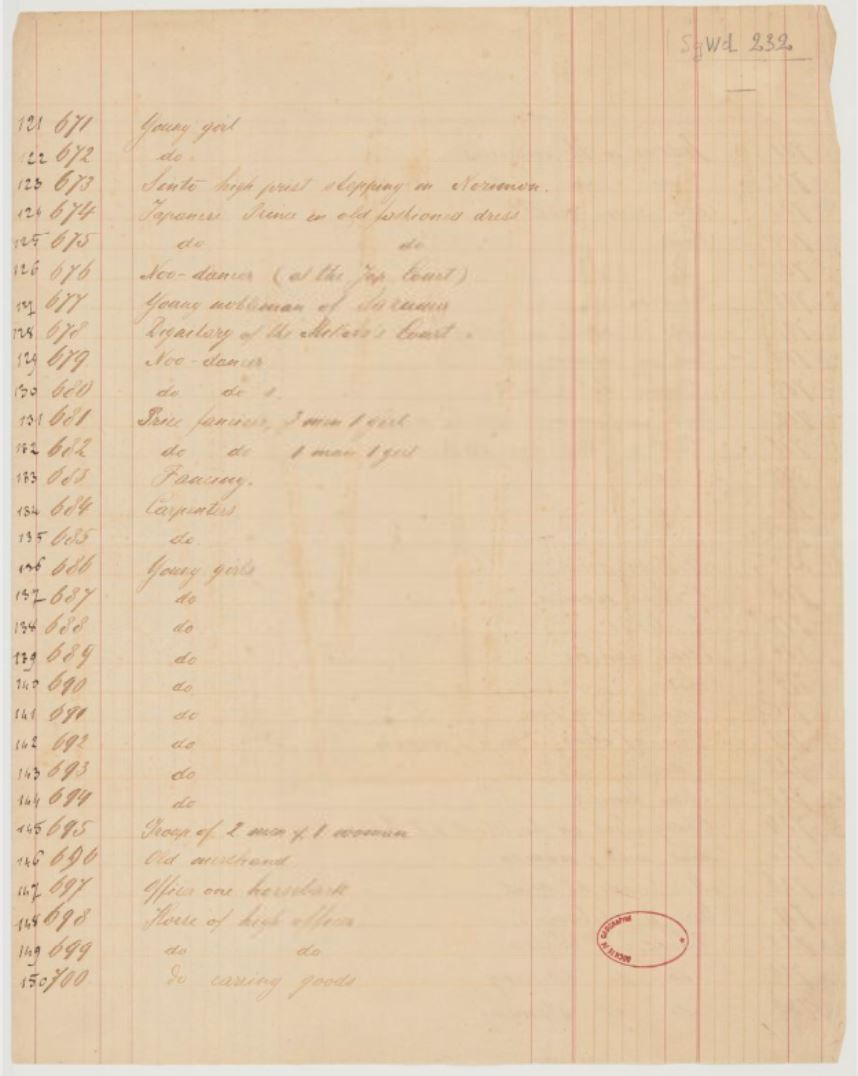 SgWd 232
121 671 Young girl
122 672 do.
123 673 Sinto high prist stepping in Norimon.
124 674 Japanese Prince in old fashioned dress
125 675 do do
126 676 Noo-dancer (at the Jap. Court)
127 677 Young nobleman of Satsuma
128 678 Dignitary of the Mikado's Court.
129 679 Noo-dancer
130 680 do do
131 681 fancier, 3 men 1 girl
132 682 do do 1 man 1 girl
133 683 Fancing.
134 684 Carpenters
135 685 do.
136 686 Young girls
137 687 do
138 688 do
139 689 do
140 690 do
141 691 do
142 692 do
143 693 do
144 694 do
145 695 Troop of 2 men & 1 woman
146 696 Old merchand
147 697 Officer one horseback
148 698 Horse of high officer
149 699 do do
150 700 do caring goods
SOCIETE DE GEOGRAPHIE